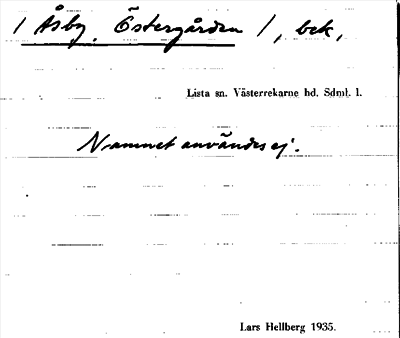 / Åsby, Östergården /, bek,
Lista sn. Västerrekarne hd. Sdml. l.
Namnet användes ej.
Lars Hellberg 1935.